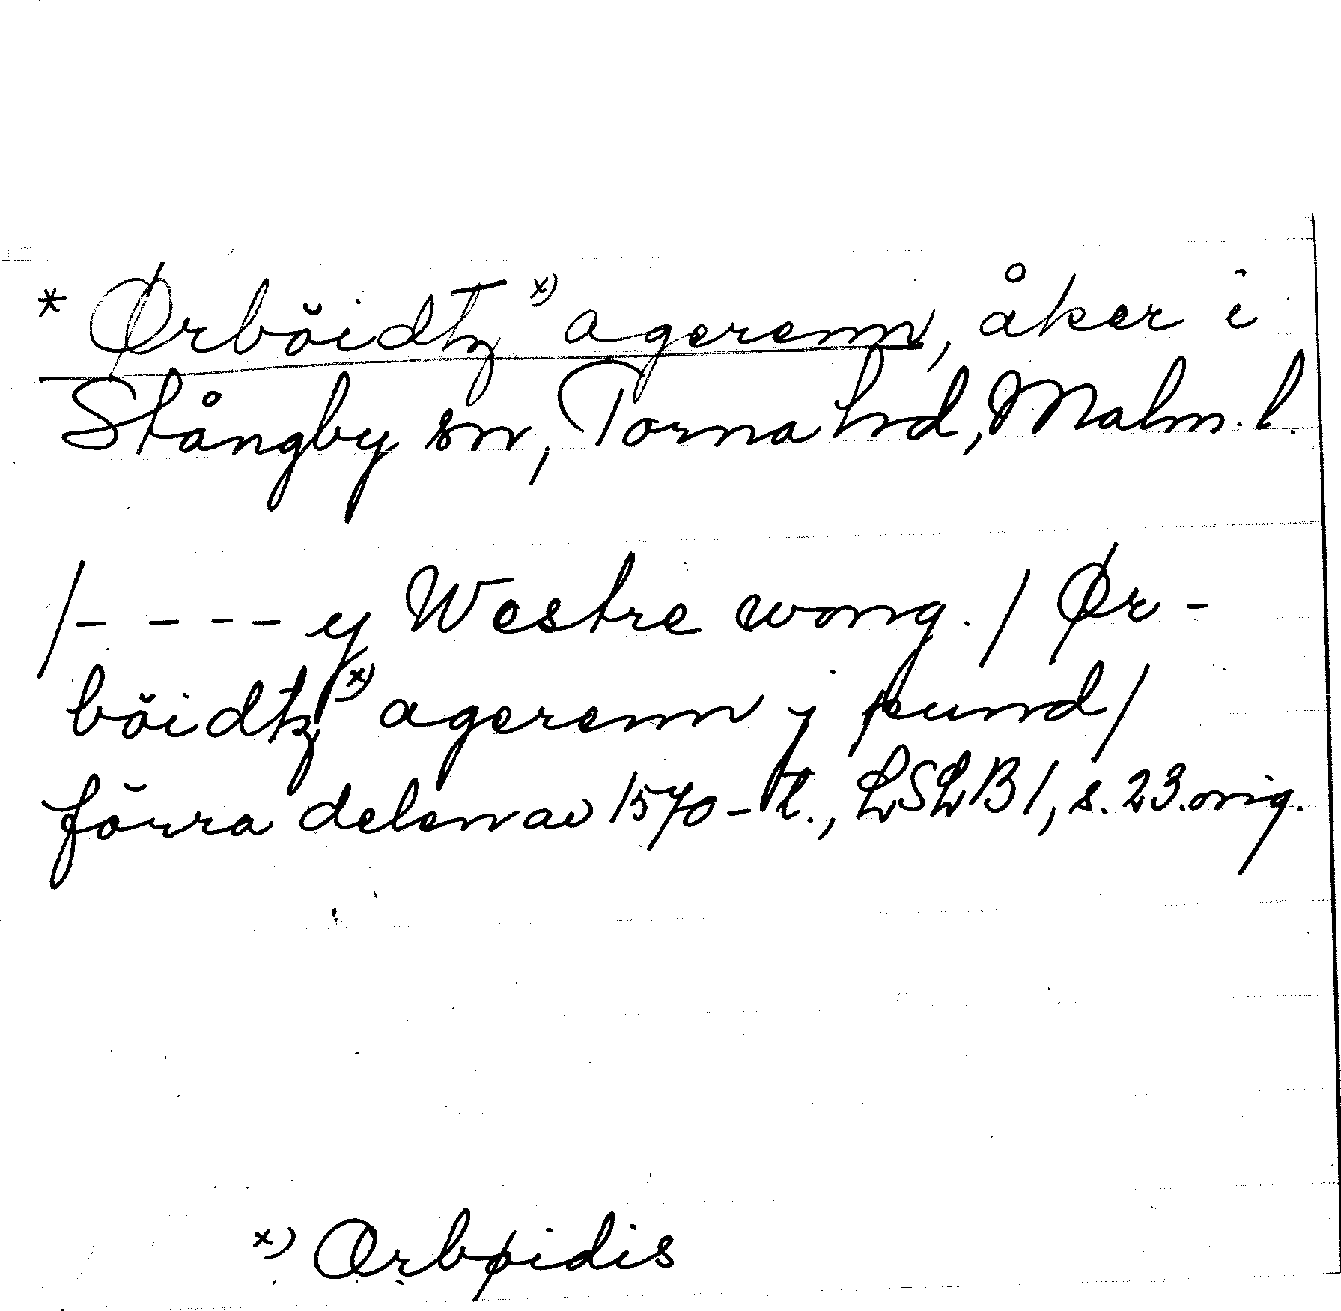 * Ørböidtz x) agerenn, åker i
Stångby sn, Torna hd, Malm. l.
/- - - - y Westre wong. / Ør-
böidtz x) agerenn j pund/
förra delen av 1570-t., LSLB 1, s. 23. orig.
x) Orbøidis